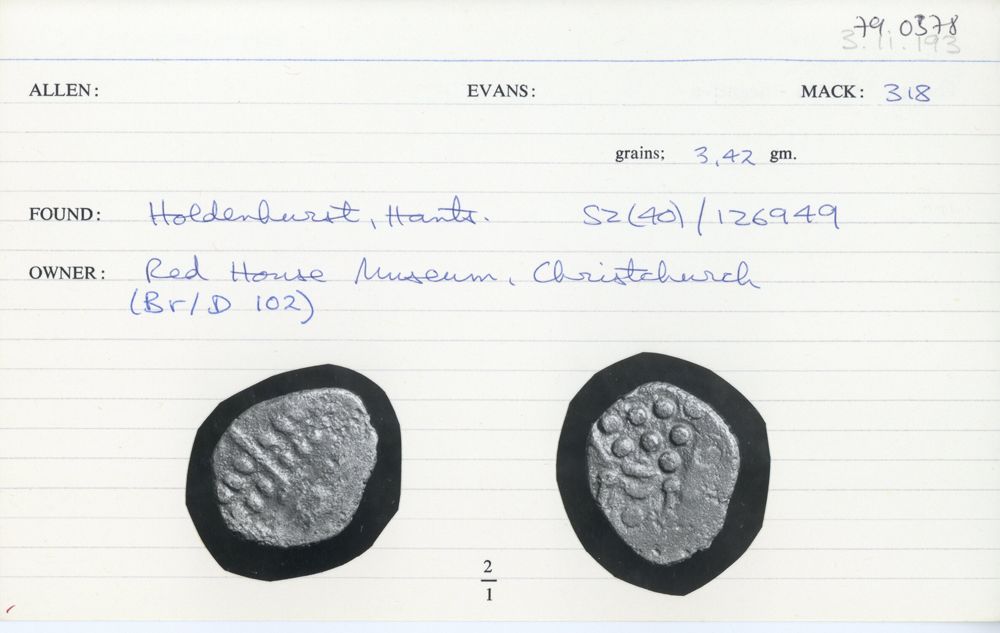 79.0378
3.11.193
ALLEN: EVANS: MACK: 318
grains; 3.42 gm.
FOUND: Holdenhurst, Hants. SZ(40)/126949
OWNER: Red House Museum, Christchurch
(Br/D 102)
2
1